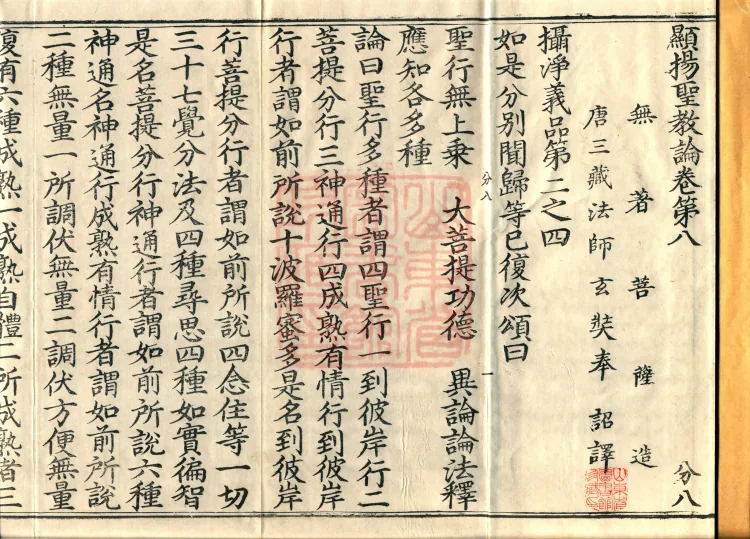 顯揚聖教論卷第八 分八
無著菩薩造
唐三藏法師玄奘奉 詔譯
攝淨義品第二之四
如是分別聞歸等已復次頌曰
聖行無上乘 大菩提功德 異論論法釋
應知各多種
論曰聖行多種者謂四聖行一到彼岸行二
菩提分行三神通行四成熟有情行到彼岸
行者謂如前所說十波羅蜜多是名到彼岸
行菩提分行者謂如前所說四念住等一切
三十七覺分法及四種尋思四種如實徧智
是名菩提分行神通行者謂如前所說六種
神通名神通行成熟有情行者謂如前所說
二種無量一所調伏無量二調伏方便無量
復有六種成熟一成熟自體二所成熟者三
分八 一